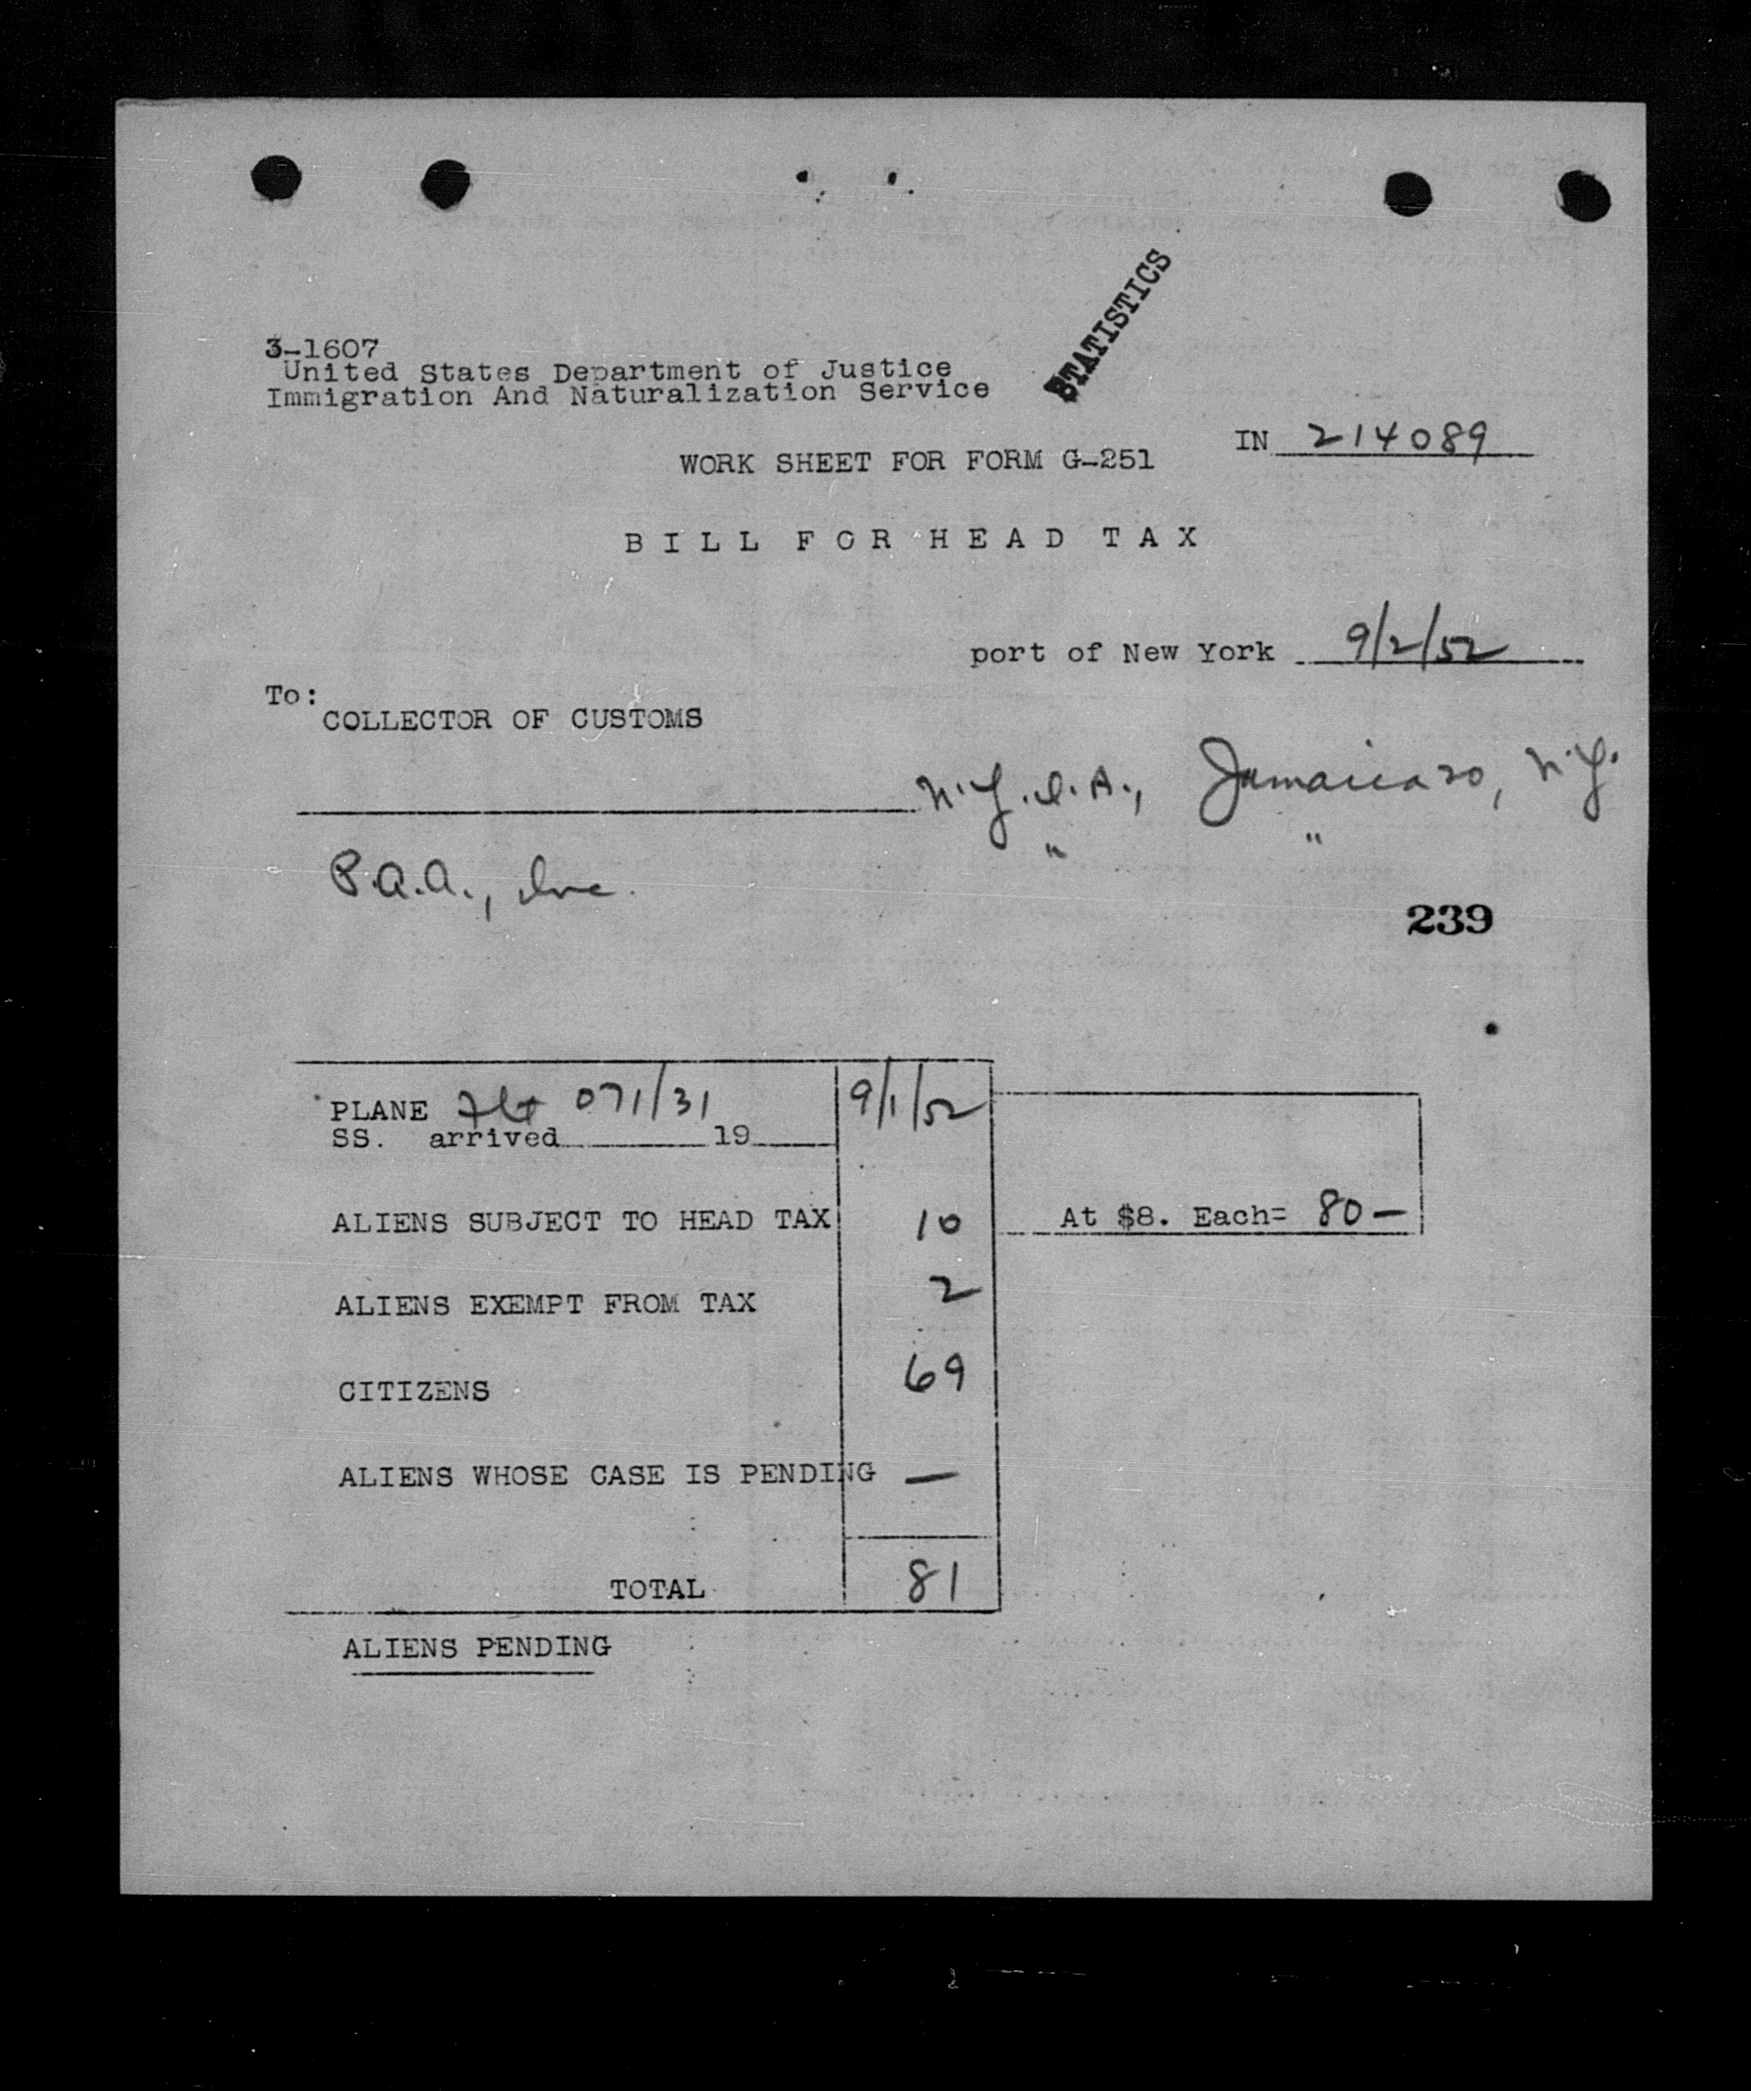 STATISTICS
3-1607
United States Department of Justice
Immigration And Naturalization Service
IN 214089
WORK SHEET FOR FORM G-251
BILL FOR HEAD TAX
port of New York 9/2/52
To:
COLLECTOR OF CUSTOMS
N.Y.I.A., Jamaica 30, N.Y.
" "
P.A.A., Inc.
239
PLANE Flt 071/31 9/1/52
SS. arrived 19
ALIENS SUBJECT TO HEAD TAX 10 At $8. Each= 80 —
ALIENS EXEMPT FROM TAX 2
CITIZENS 69
ALIENS WHOSE CASE IS PENDING —
TOTAL 81
ALIENS PENDING